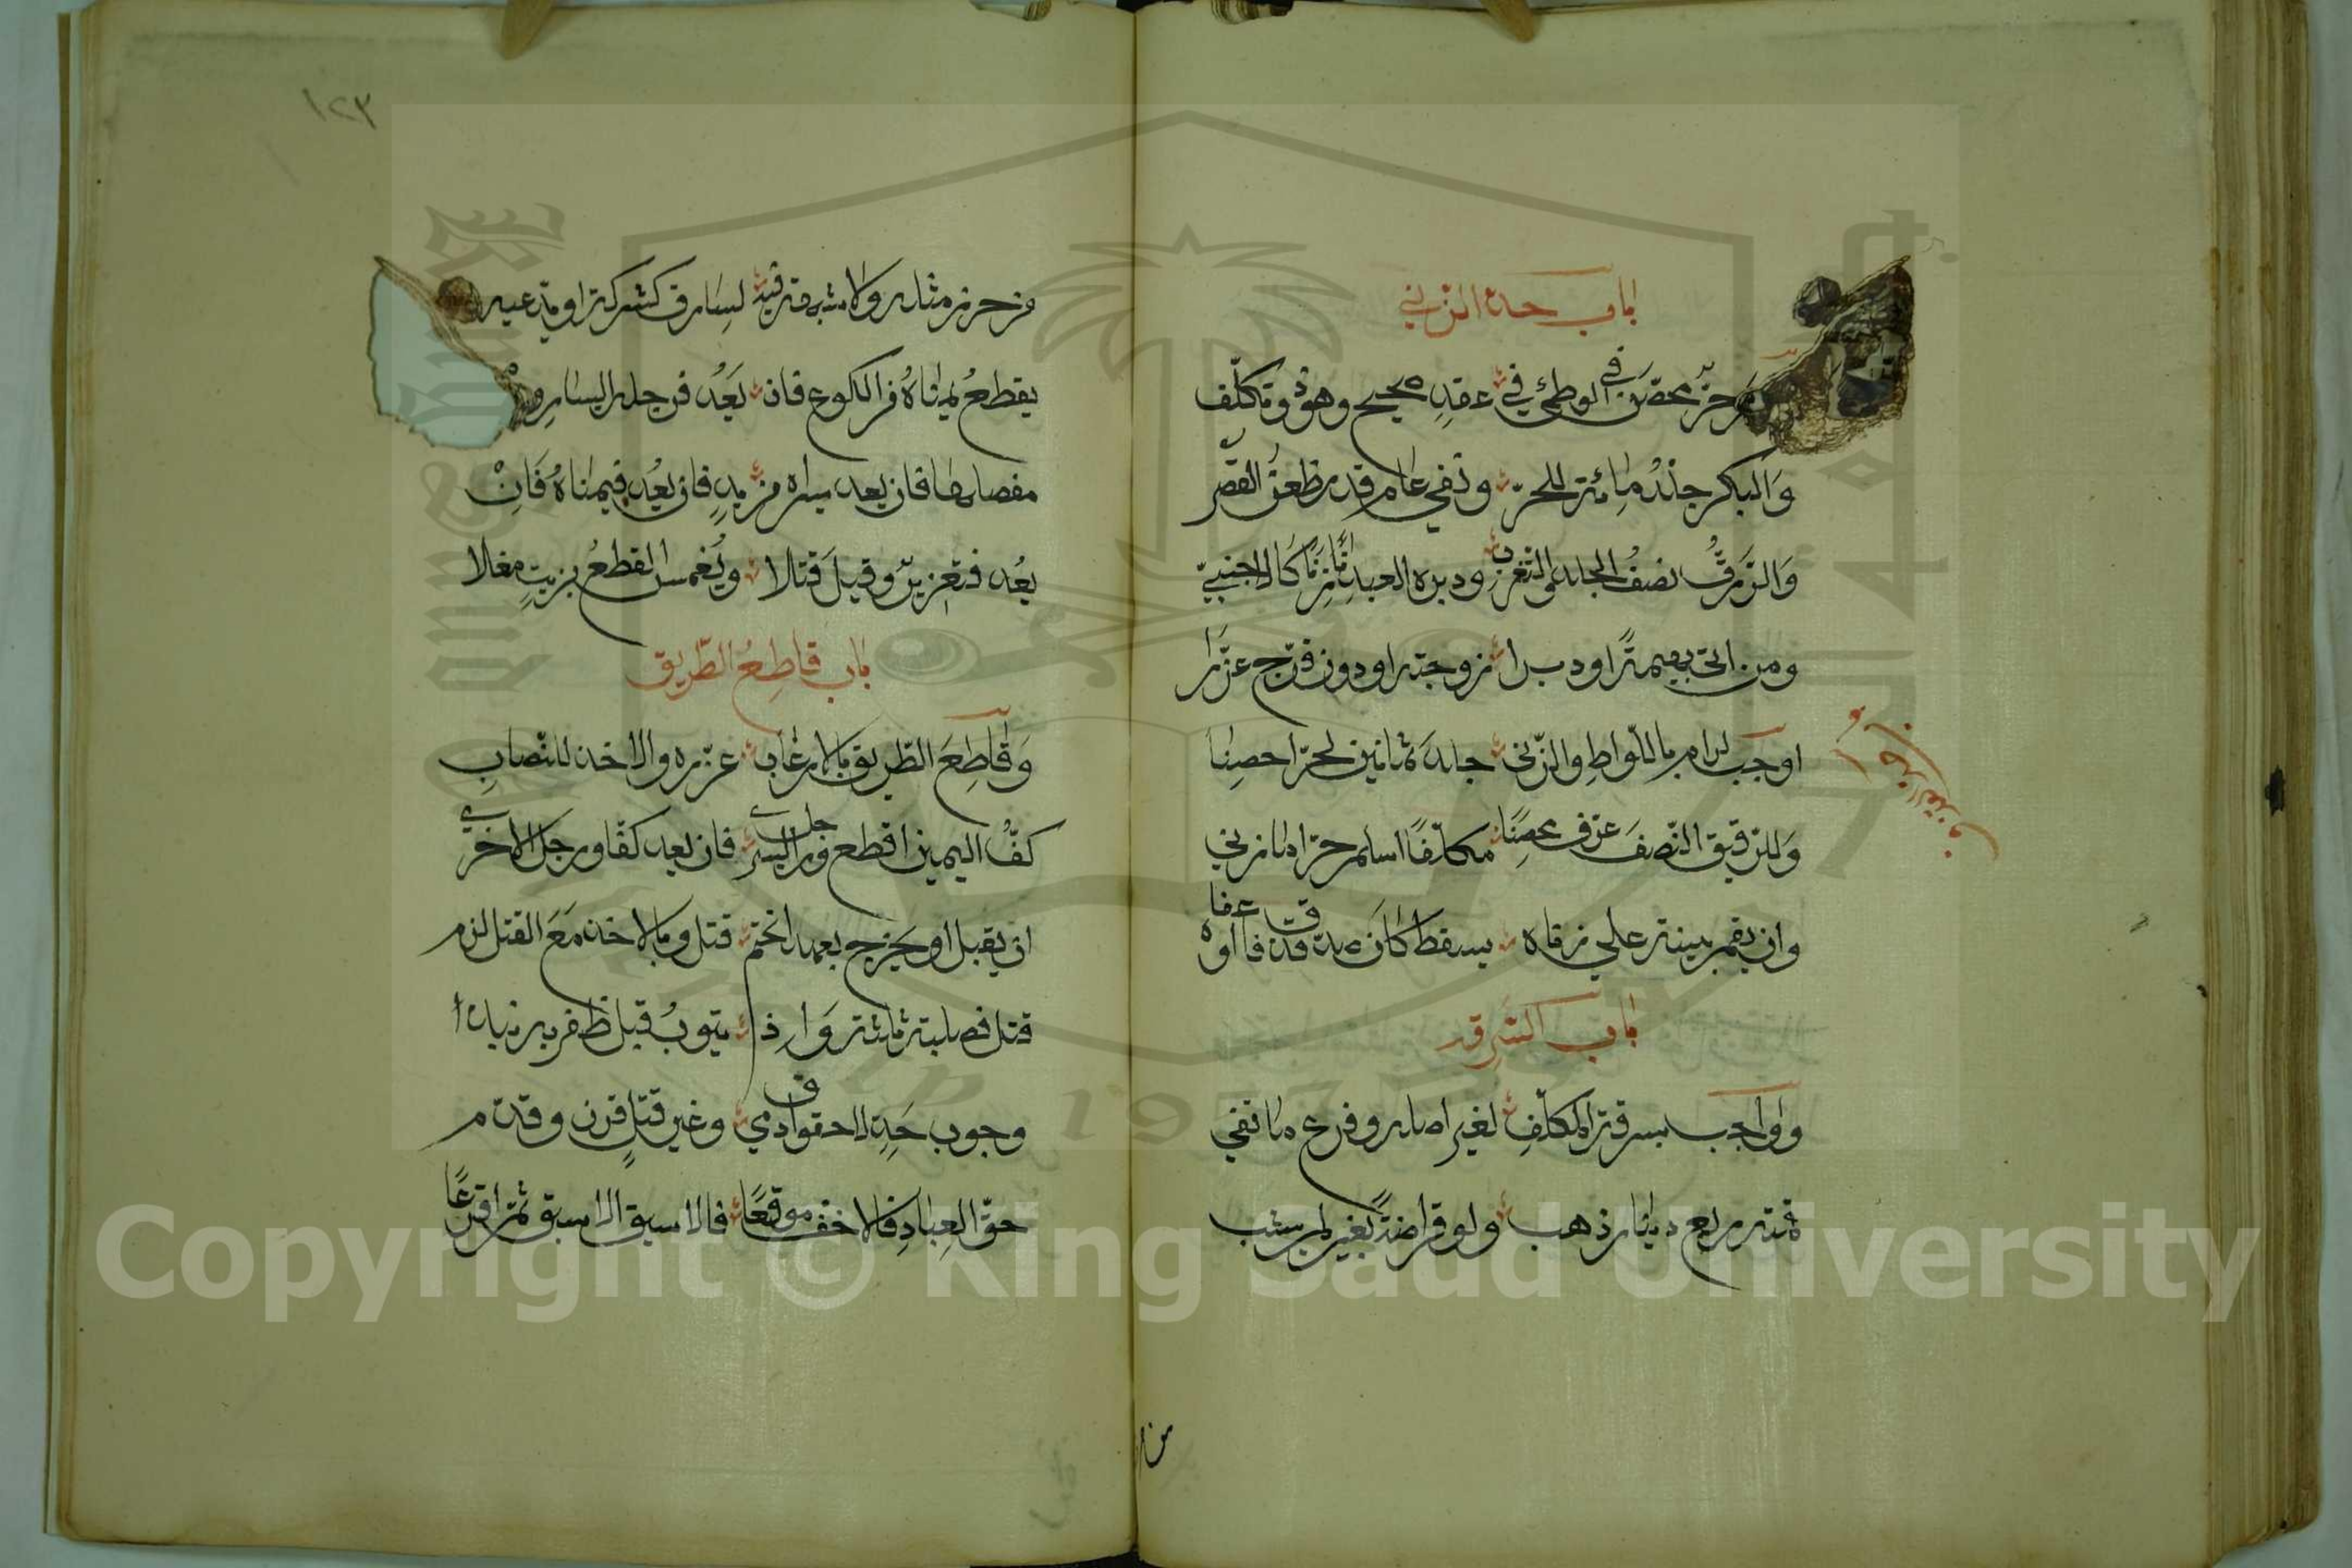 باب حد الزني
حرّ محصن في الوطئ في عقدِ صحيح وهو ذو تكلّف
وَالبكر جلدُ مائة للحرّ ونفي عام قدر ظعن القصر
وَالرّقُّ نصفُ الجلد والتغرب ودبره العبد زنا كالاجنبيّ
ومن اتى بهيمةً او دبرا زوجته او دون فرج عزّرا
اوجب لرام باللّواطِ والزّنى جلدَ ثمانين لحرّ احصنا
وَللرّقيق النّصفَ عرّف محصِنًا مكلّفًا اسلم حرّا ما زني
وان يقم بينة علي زناه يسقط كان صدّق قذفا اوه عفا
باب السرقه
وواجب بسرقة المكلّفِ لغير اصله وفرع ما تفي
قمته بربع دينار ذهب ولو قراضةً بغير لم يشب
من حرز مثله ولا شبهة فيه لسارق كشركة او يدعيه
يقطعُ يمناهُ من الكوع فان يَعُد فرجله اليسار
مفصلها فان يعد يسراه من يدٍ فان يعُد فيمناهُ فَانْ
يعُد فتعزيرٌ وقيلَ قتلا ويُغمس القطعُ بزيتٍ مغلا
باب قاطِعُ الطّريق
وَقاطِعَ الطّريق بالارعاب عزّره والاخذ للنّصابِ
كفَّ اليمين اقطع ورجل اليسرى فان يعد كفّا ورجل الاخري
ان يقبل او يخرج بعمد انحتم قتل وبالاخذ مَعَ القتل لزم
قتل فصلبة ثلثة وَ اذا يتوبُ قبل ظفر به نبذا
وجوب حَدِ لا حقوق ادمي وغير قتلٍ فرن وقدّم
حقّ العِبادِ فالاخف موقعًا فالاسبق الاسبق ثمّ اقرعًا
١٢٣